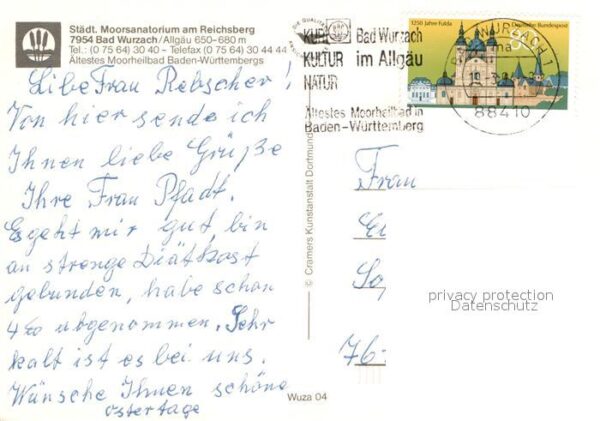 Städt. Moorsanatorium am Reichsberg
7954 Bad Wurzach/Allgäu 650–680 m
Tel.: (0 75 64) 30 40 – Telefax (0 75 64) 30 44 44
Ältestes Moorheilbad Baden-Württembergs
Liebe Frau Rebscher!
Von hier sende ich
Ihnen liebe Grüße
Ihre Frau Pfadt.
Es geht mir gut, bin
an strenge Diätkost
gebunden, habe schon
4 abgenommen. Sehr
kalt ist es bei uns.
Wünsche Ihnen schöne
Ostertage
© Cramers Kunstanstalt Dortmund
Wuza 04
KUR
KULTUR
NATUR
Bad Wurzach
im Allgäu
Ältestes Moorheilbad in
Baden-Württemberg
1250 Jahre Fulda
Deutsche Bundespost
WURZACH 1
88410
Frau
76-
privacy protection
Datenschutz